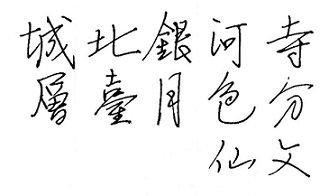 城北銀河寺
層臺月色分
仙文